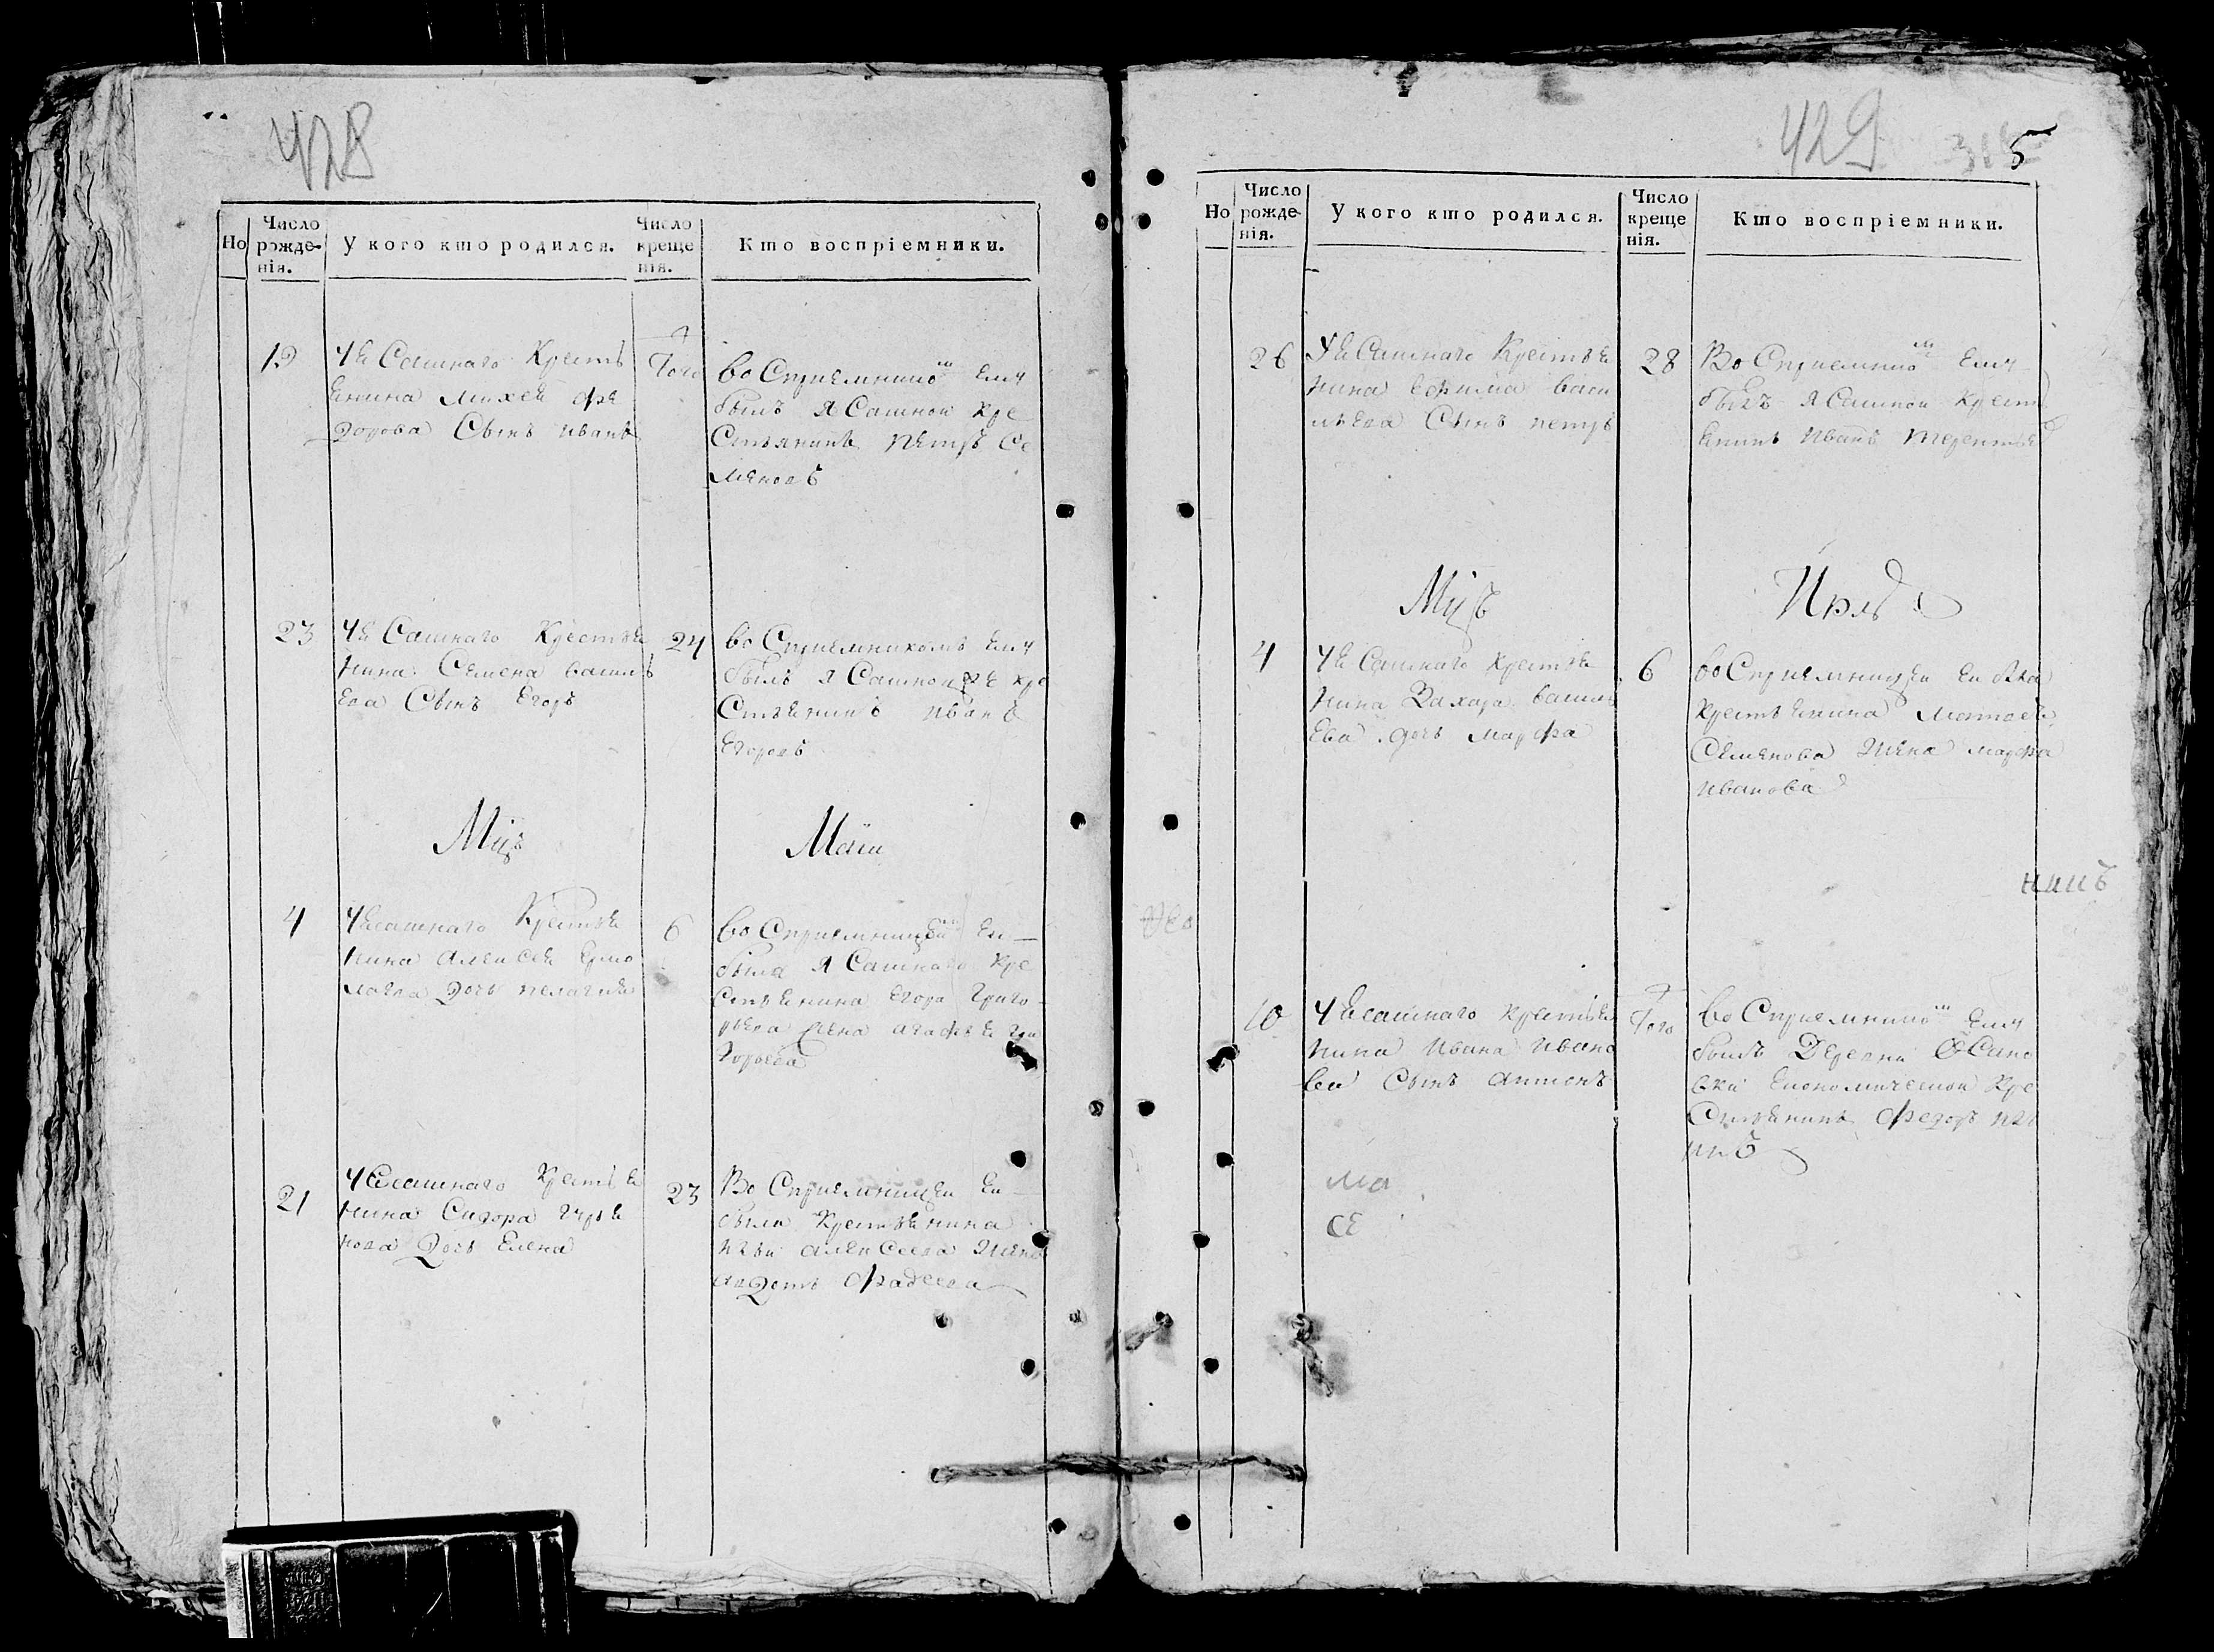 428
Но
Число рожде-нія.
У кого кто родился.
Число креще нія.
Кто воспріемники.
19
У Ясашнаго Кресть
енина михеи фе
дорова Сынъ иванъ
Того
во Сприемнико м Ему
былъ я Сашнои кре
Стьянинъ петръ Се
меновъ
23
У Ясашнаго Крестье
нина Семена василь
ева Сынъ Егоръ
24
во Сприемникомъ Ему
былъ я Сашнои же кре
Стьенинъ иванъ
Егоровъ
Мцъ
Маiи
4
У Ясашнаго Крестье
нина алексеи Ермо
лаева дочь пелагие
6
во Сприемницеи Еи
была я Сашнаго кре
стьенина Егора григо
рьева жена агафье гри
горьева
21
У Ясашнаго Крестье
нина Сидора гурье
нова дочь Елена
23
Во Сприемницеи Еи
была Крестьенина
алексеева жена
авдоть фадеева
429
5
Но
Число рожде-нія.
У кого кто родился.
Число креще нія.
Кто воспріемники.
26
У Ясашнаго Крестье
нина ефима васи
льева Сынъ петръ
28
Во Сприемнико м Ему
былъ я Сашнои крест
енинъ иванъ терентье
Мцъ
Июль
4
У Ясашнаго крестье
нина Захара василь
Ева дочь марфа
6
во Сприемницеи Еи
крестьенина матвеи
Семенова жена марфа
иванова
нинъ
10
У Ясашнаго крестье
нина ивана ивано
ва Сынъ антонъ
Того
во Сприемнико м Ему
былъ Деревни Осино
вки Економическои кре
Стьенинъ федоръ
ма
се